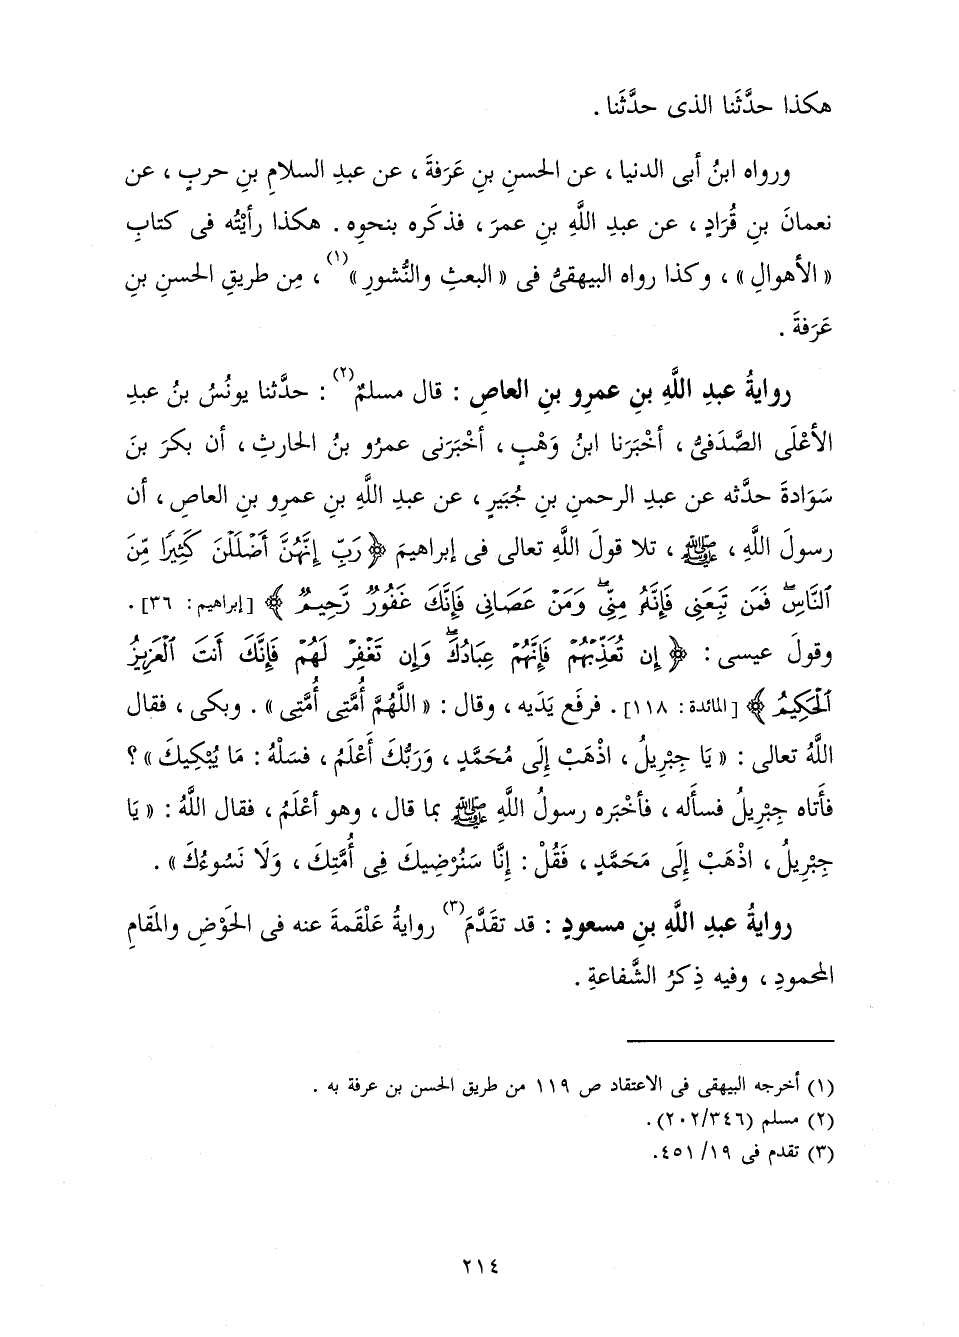 هكذا حدَّثَنا الذى حدَّثَنا .
ورواه ابنُ أبى الدنيا ، عن الحسنِ بنِ عَرَفةَ ، عن عبدِ السلامِ بنِ حربٍ ، عن
نعمانَ بنِ قُرَادٍ ، عن عبدِ اللَّهِ بنِ عمرَ ، فذكَره بنحوِه . هكذا رأيْتُه فى كتابِ
« الأهوالِ » ، وكذا رواه البيهقىُّ فى « البعثِ والنُّشورِ »(١) ، مِن طريقِ الحسنِ بنِ
عَرَفةَ .
روايةُ عبدِ اللَّهِ بنِ عمرِو بنِ العاصِ : قال مسلمٌ(٢) : حدَّثنا يونُسُ بنُ عبدِ
الأعْلَى الصَّدَفىُّ ، أخْبَرَنا ابنُ وَهْبٍ ، أخْبَرَنى عمرُو بنُ الحارثِ ، أن بكرَ بنَ
سَوَادةَ حدَّثه عن عبدِ الرحمنِ بنِ جُبَيرٍ ، عن عبدِ اللَّهِ بنِ عمرِو بنِ العاصِ ، أن
رسولَ اللَّهِ ، ﷺ ، تلا قولَ اللَّهِ تعالى فى إبراهيمَ ﴿ رَبِّ إِنَّهُنَّ أَضْلَلْنَ كَثِيرًا مِّنَ
ٱلنَّاسِۖ فَمَن تَبِعَنِى فَإِنَّهُۥ مِنِّىۖ وَمَنْ عَصَانِى فَإِنَّكَ غَفُورٌ رَّحِيمٌ ﴾ [إبراهيم: ٣٦] .
وقولَ عيسى : ﴿ إِن تُعَذِّبْهُمْ فَإِنَّهُمْ عِبَادُكَۖ وَإِن تَغْفِرْ لَهُمْ فَإِنَّكَ أَنتَ ٱلْعَزِيزُ
ٱلْحَكِيمُ ﴾ [المائدة: ١١٨] . فرفَع يَدَيه ، وقال : « اللَّهُمَّ أُمَّتِى أُمَّتِى » . وبكى ، فقال
اللَّهُ تعالى : « يَا جِبْرِيلُ ، اذْهَبْ إِلَى مُحَمَّدٍ ، وَرَبُّكَ أَعْلَمُ ، فسَلْهُ : مَا يُبْكِيكَ » ؟
فأتاه جِبْرِيلُ فسأَله ، فأخْبَره رسولُ اللَّهِ ﷺ بما قال ، وهو أعْلَمُ ، فقال اللَّهُ : « يَا
جِبْرِيلُ ، اذْهَبْ إِلَى مَحَمَّدٍ ، فَقُلْ : إِنَّا سَنُرْضِيكَ فِى أُمَّتِكَ ، وَلَا نَسُوءُكَ » .
روايةُ عبدِ اللَّهِ بنِ مسعودٍ : قد تقَدَّمَ(٣) روايةُ عَلْقَمةَ عنه فى الحَوْضِ والمَقامِ
المحمودِ ، وفيه ذِكرُ الشَّفاعةِ .
(١) أخرجه البيهقى فى الاعتقاد ص ١١٩ من طريق الحسن بن عرفة به .
(٢) مسلم (٢٠٢/٣٤٦).
(٣) تقدم فى ٤٥١/١٩.
٢١٤